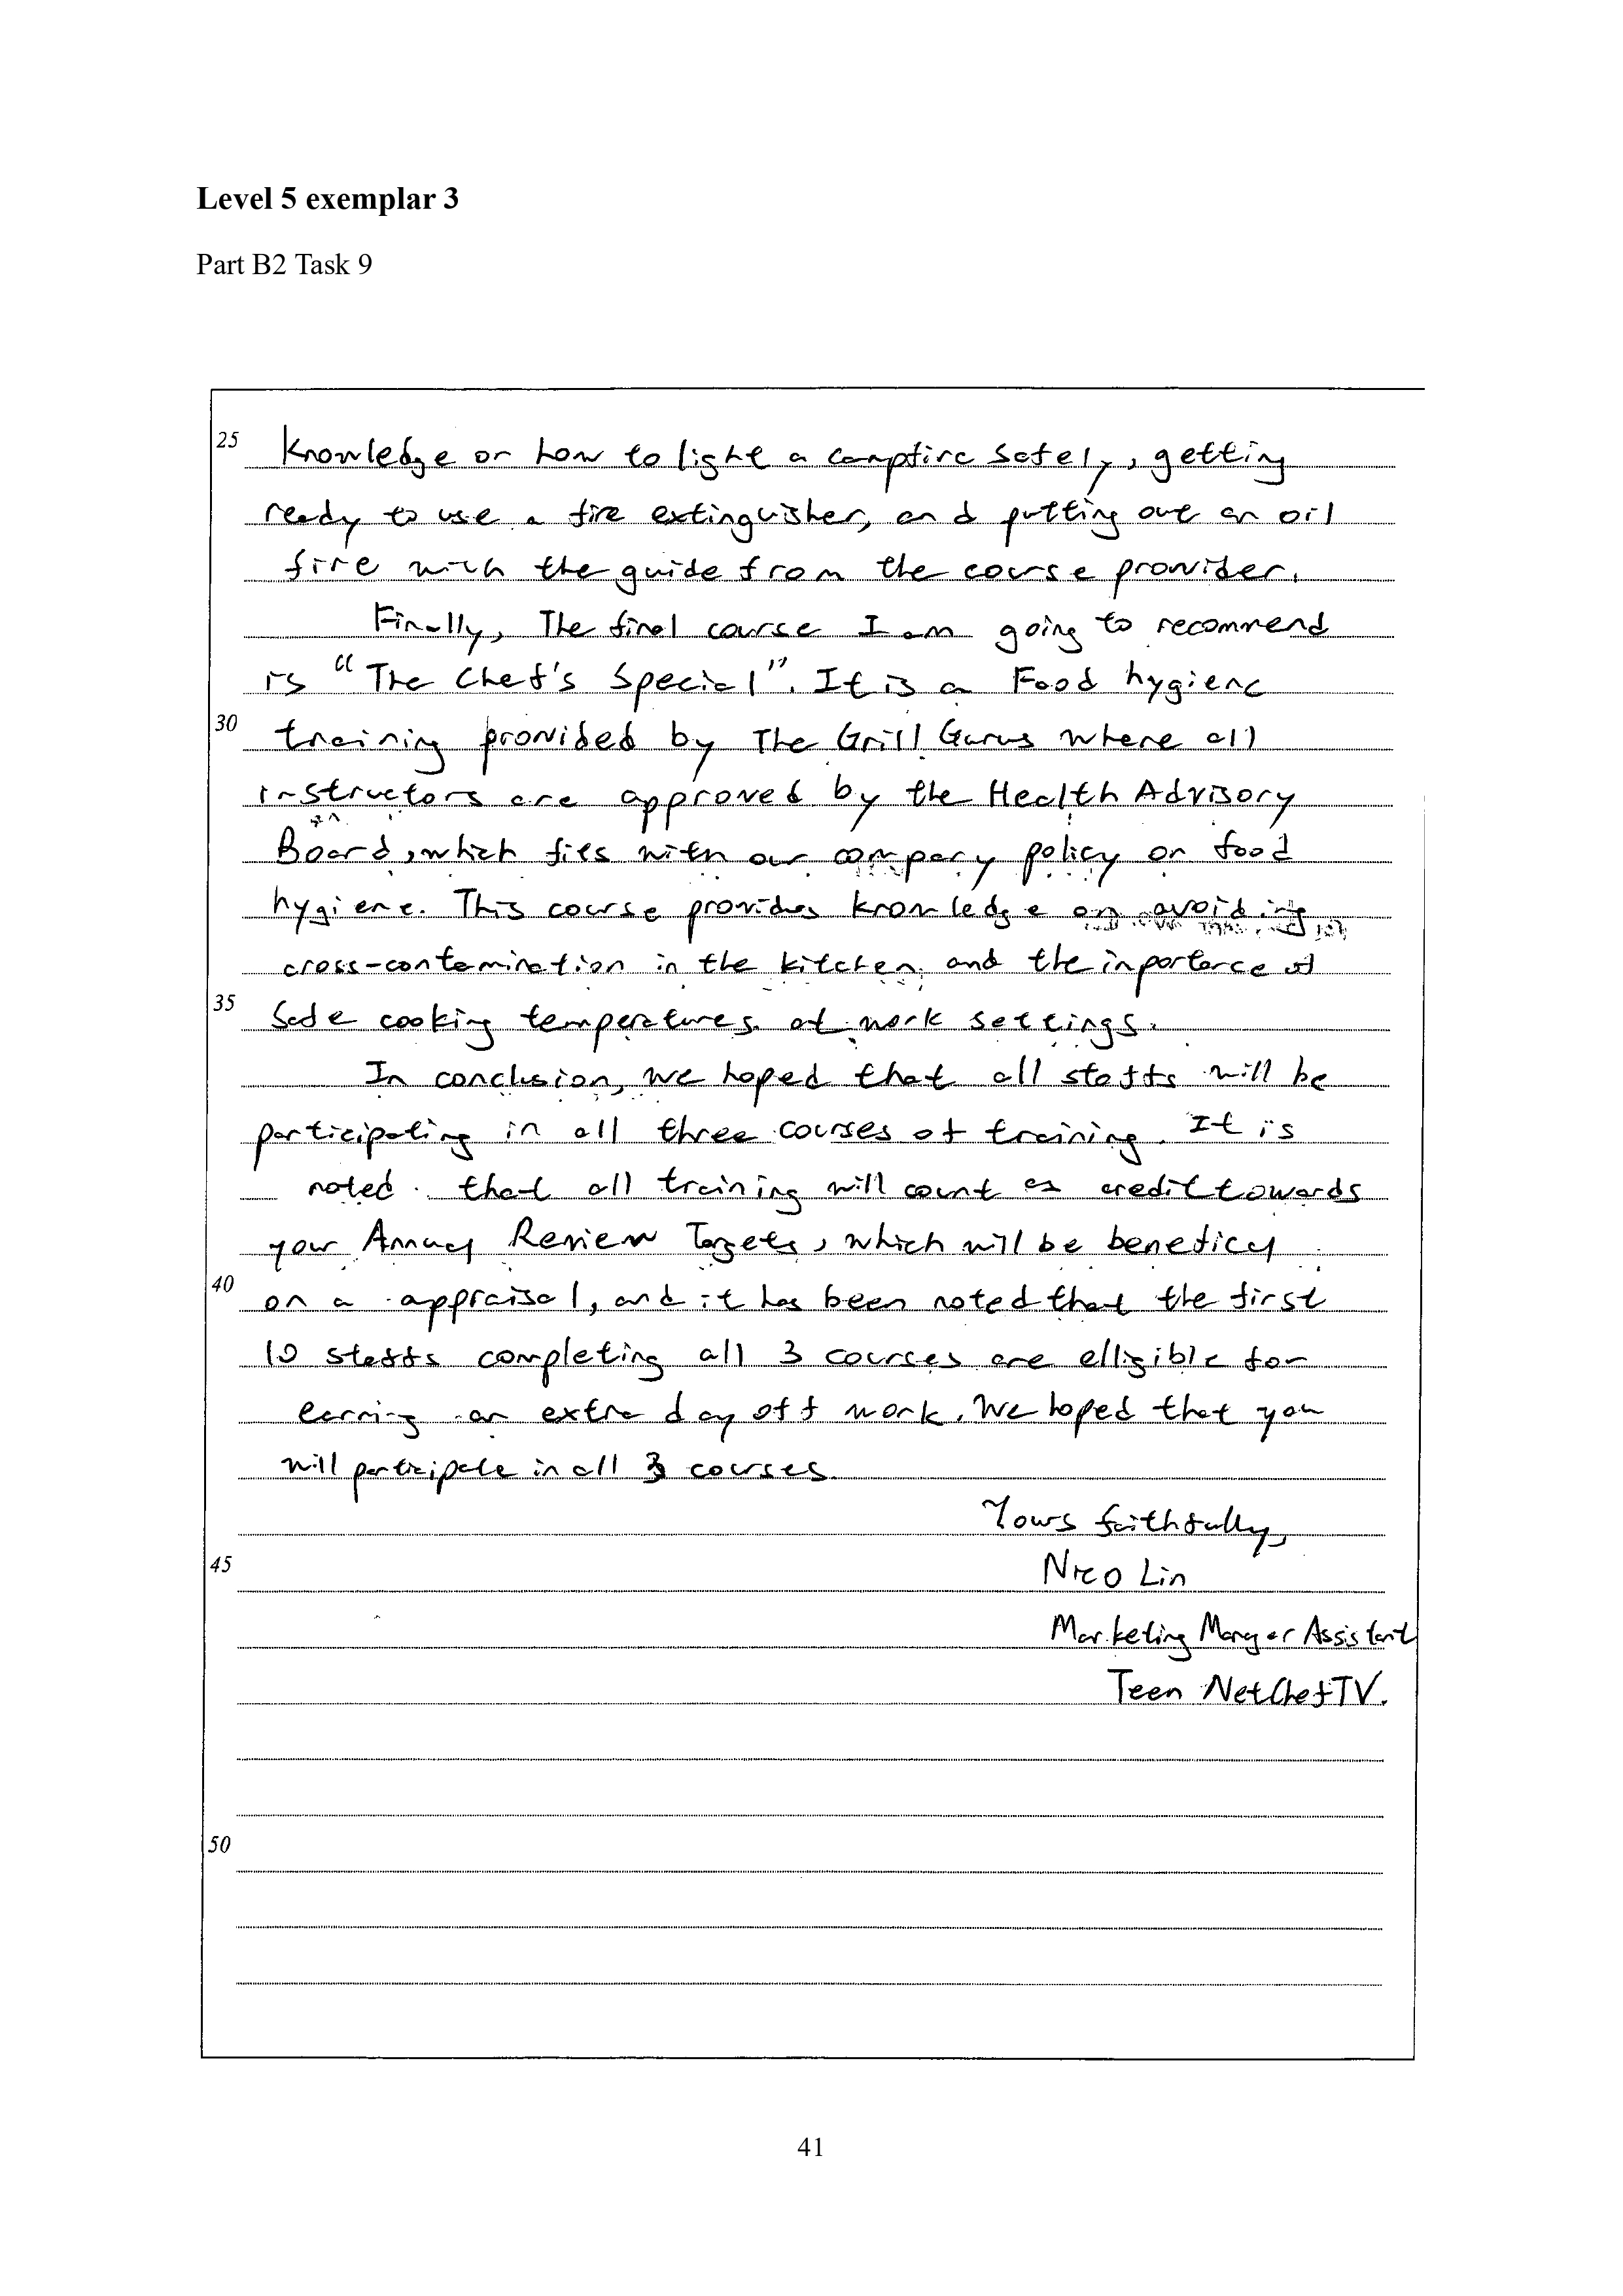 Level 5 exemplar 3
Part B2 Task 9
25 knowledge on how to light a campfire safely, getting
ready to use a fire extinguisher, and putting out an oil
fire with the guide from the course provider.
Finally, The final course I am going to recommend
is "The Chef's Special". It is a Food hygiene
30 training provided by The Grill Gurus where all
instructors are approved by the Health Advisory
Board, which fits with our company policy on food
hygiene. This course provides knowledge on avoiding
cross-contamination in the kitchen, and the importance of
35 Safe cooking temperatures at work settings.
In conclusion, we hoped that all staffs will be
participating in all three courses of training. It is
noted that all training will count as credit towards
your Annual Review Targets, which will be beneficial
40 on a appraisal, and it has been noted that the first
10 staffs completing all 3 courses are elligible for
earning an extra day off work. We hoped that you
will participate in all 3 courses.
Yours faithfully,
45 Nico Lin
Marketing Manager Assistant
Teen NetChefTV.
50
41